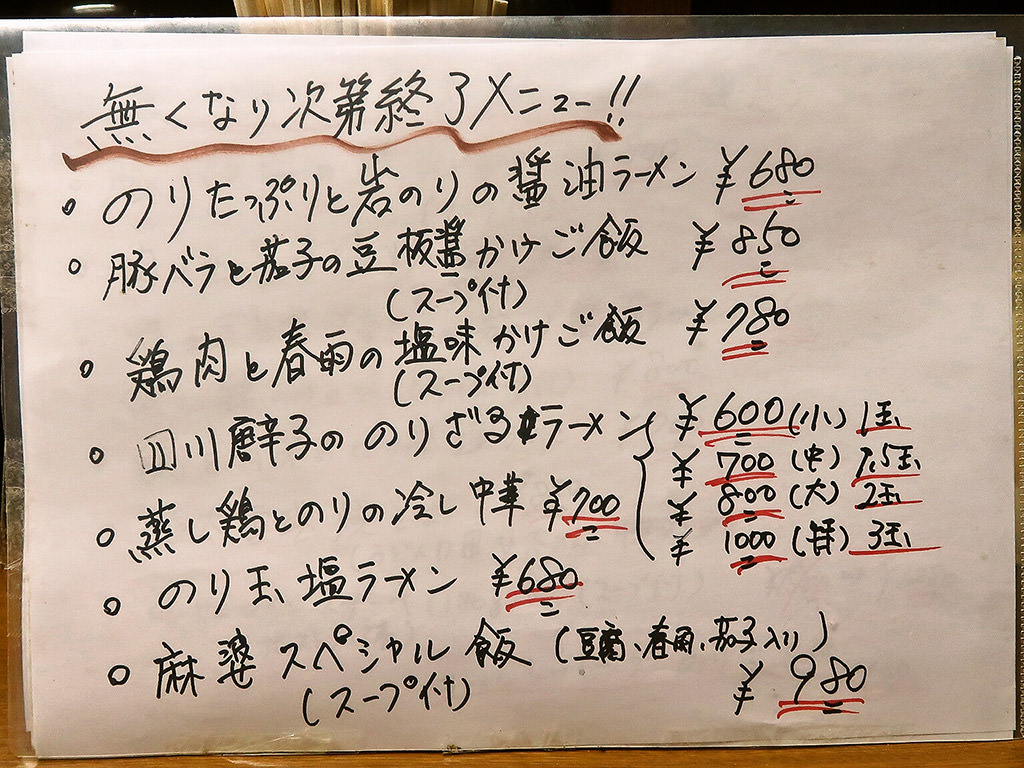 無くなり次第終了メニュー!!
。のりたっぷりと岩のりの醤油ラーメン ¥680
。豚バラと茄子の豆板醤かけご飯 ¥850
(スープ付)
。鶏肉と春雨の塩味かけご飯 ¥780
(スープ付)
。四川唐辛子ののりざるラーメン ¥600 (小) 1玉
¥700 (中) 1.5玉
¥800 (大) 2玉
¥1000 3玉
。蒸し鶏とのりの冷し中華 ¥700
。のり玉塩ラーメン ¥680
。麻婆スペシャル飯 (豆腐、春雨、茄子入り)
(スープ付) ¥980